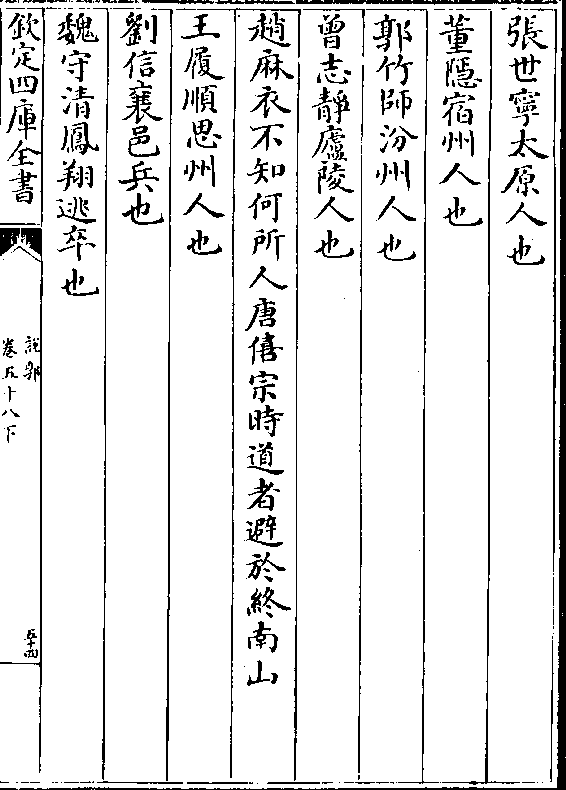 張世寧太原人也
董隱宿州人也
郭竹師汾州人也
曾志靜廬陵人也
趙麻衣不知何所人唐僖宗時道者避於終南山
王履順恩州人也
劉信襄邑兵也
魏守清鳳翔逃卒也
欽定四庫全書
說郛
卷五十八下
五十四